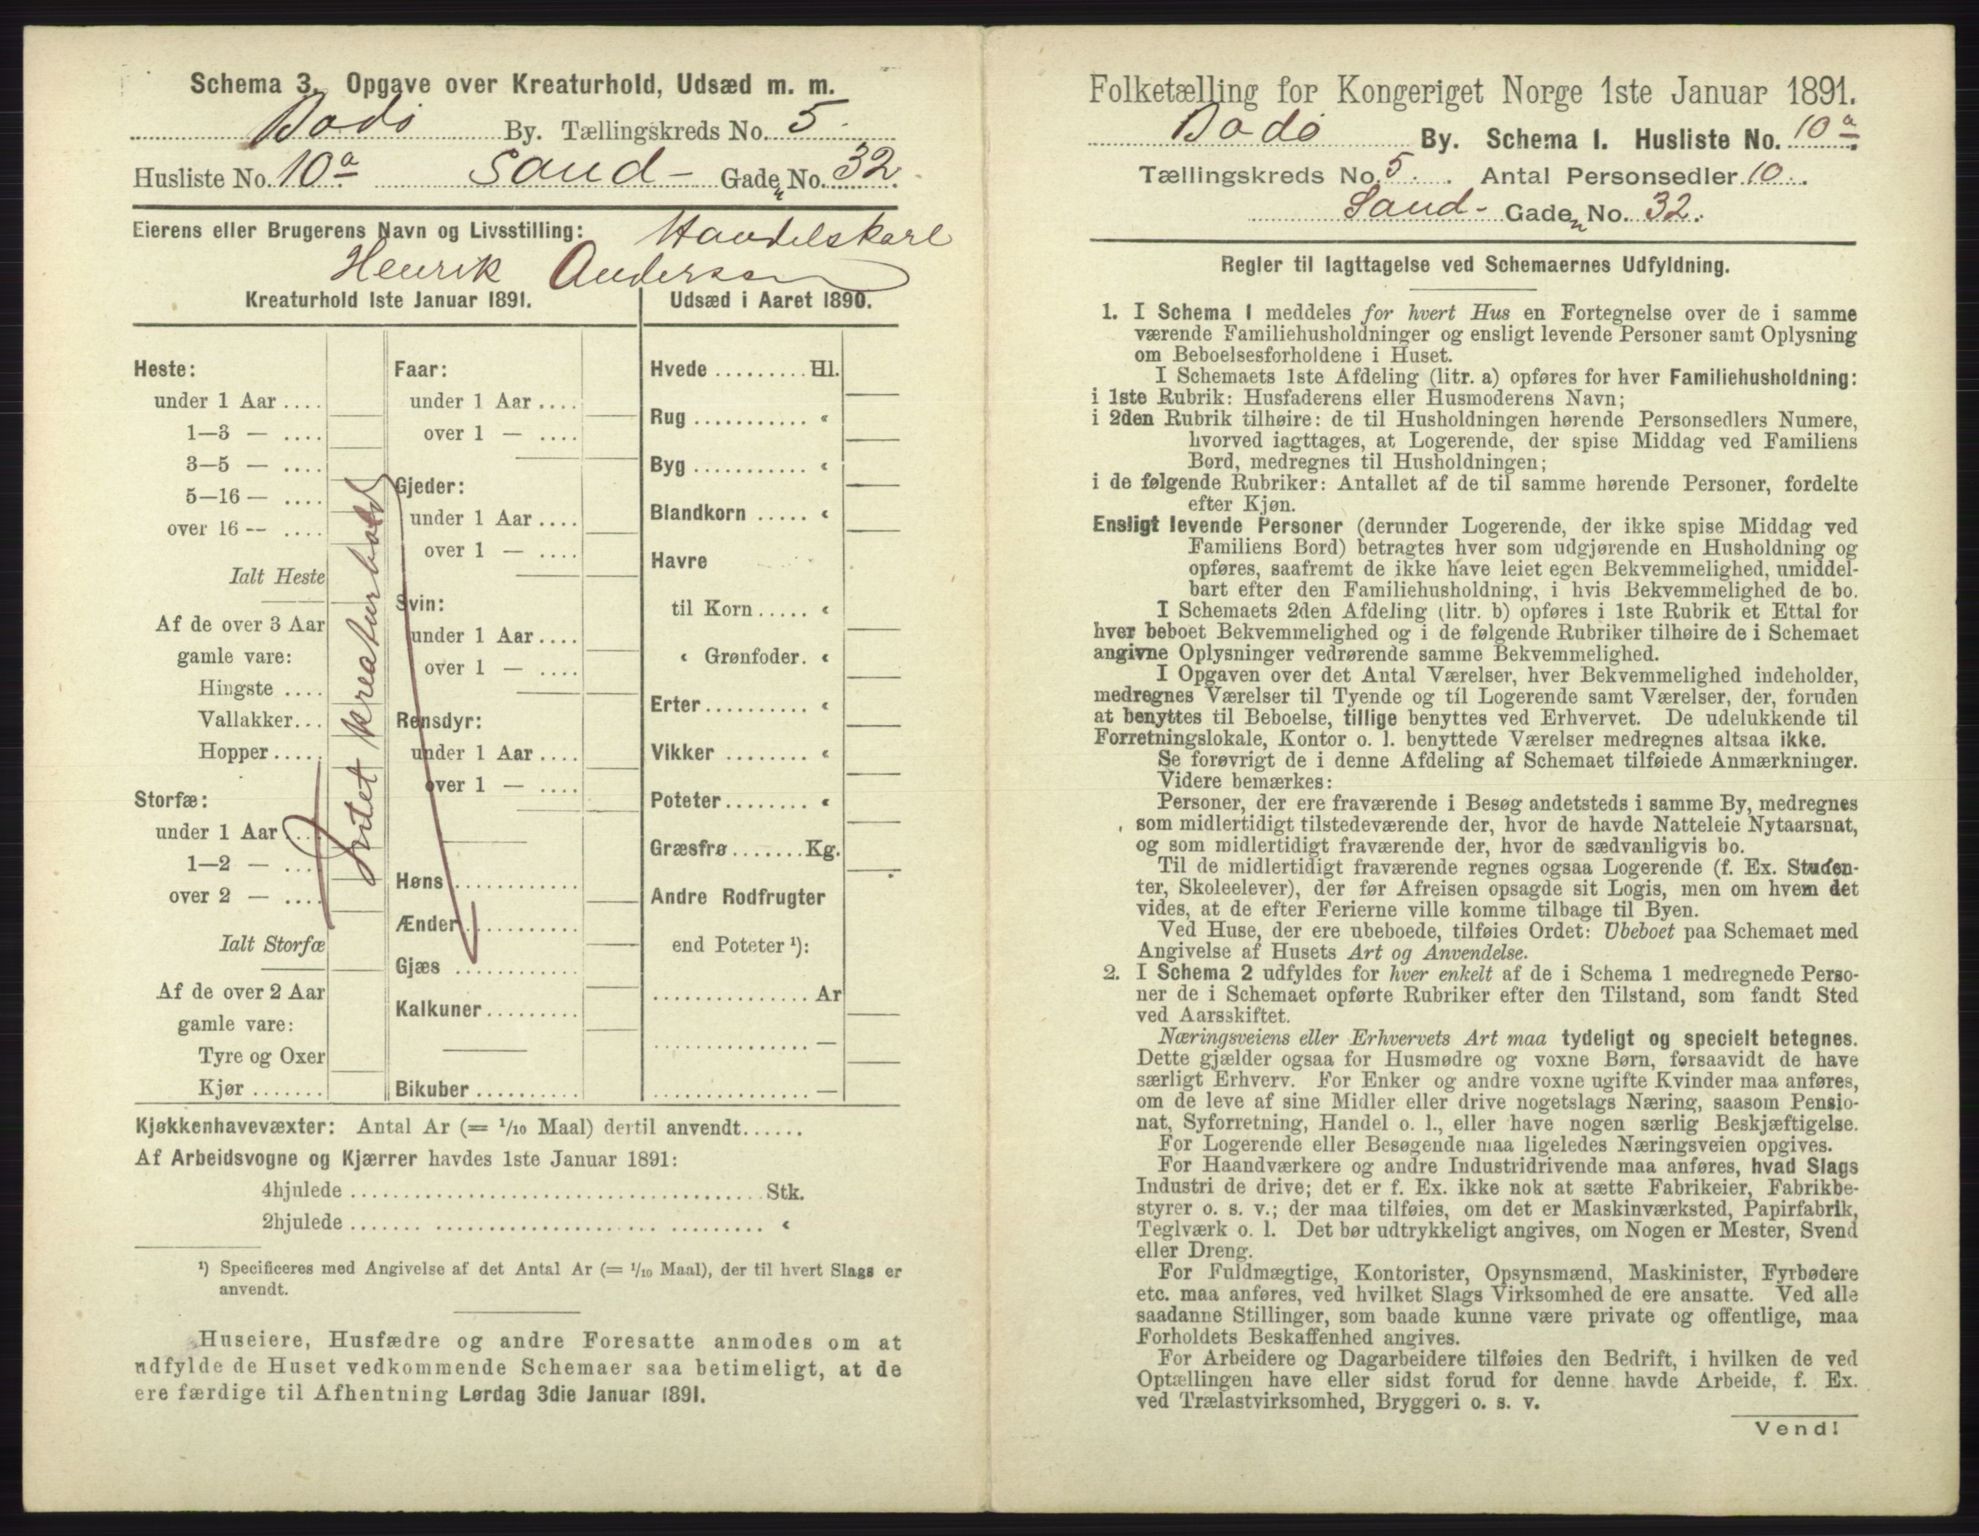 Schema 3. Opgave over Kreaturhold, Udsæd m. m.
Bodø By. Tællingskreds No. 5.
Husliste No. 10a Sand- Gaden No. 32.
Eierens eller Brugerens Navn og Livsstilling: Handelskarl
Henrik Andersen
Kreaturhold 1ste Januar 1891.
Heste:
under 1 Aar ....
1—3 — ....
3—5 — ....
5—16 — ....
over 16 -- ....
Ialt Heste
Af de over 3 Aar
gamle vare:
Hingste ....
Vallakker...
Hopper .....
Storfæ:
under 1 Aar ....
1—2 — ....
over 2 — ....
Ialt Storfæ
Af de over 2 Aar
gamle vare:
Tyre og Oxer
Kjør .......
Intet Kreaturhold
Faar:
under 1 Aar ....
over 1 — ....
Gjeder:
under 1 Aar ....
over 1 — ....
Svin:
under 1 Aar ....
over 1 — ....
Rensdyr:
under 1 Aar ....
over 1 — ....
Høns ...........
Ænder...........
Gjæs ...........
Kalkuner .........
Bikuber ..........
Udsæd i Aaret 1890.
Hvede ......... Hl.
Rug ........... «
Byg ........... «
Blandkorn ..... «
Havre
til Korn ..... «
« Grønfoder. «
Erter.......... «
Vikker ........ «
Poteter........ «
Græsfrø ....... Kg.
Andre Rodfrugter
end Poteter ¹):
............... Ar
............... —
............... —
Kjøkkenhavevæxter: Antal Ar (= 1/10 Maal) dertil anvendt......
Af Arbeidsvogne og Kjærrer havdes 1ste Januar 1891:
4hjulede ........................................ Stk.
2hjulede ........................................ «
¹) Specificeres med Angivelse af det Antal Ar (= 1/10 Maal), der til hvert Slags er
anvendt.
Huseiere, Husfædre og andre Foresatte anmodes om at
udfylde de Huset vedkommende Schemaer saa betimeligt, at de
ere færdige til Afhentning Lørdag 3die Januar 1891.
Folketælling for Kongeriget Norge 1ste Januar 1891.
Bodø By. Schema 1. Husliste No. 10a
Tællingskreds No. 5. Antal Personsedler 10.
Sand- Gaden No. 32.
Regler til Iagttagelse ved Schemaernes Udfyldning.
1. I Schema 1 meddeles for hvert Hus en Fortegnelse over de i samme
værende Familiehusholdninger og ensligt levende Personer samt Oplysning
om Beboelsesforholdene i Huset.
I Schemaets 1ste Afdeling (litr. a) opføres for hver Familiehusholdning:
i 1ste Rubrik: Husfaderens eller Husmoderens Navn;
i 2den Rubrik tilhøire: de til Husholdningen hørende Personsedlers Numere,
hvorved iagttages, at Logerende, der spise Middag ved Familiens
Bord, medregnes til Husholdningen;
i de følgende Rubriker: Antallet af de til samme hørende Personer, fordelte
efter Kjøn.
Ensligt levende Personer (derunder Logerende, der ikke spise Middag ved
Familiens Bord) betragtes hver som udgjørende en Husholdning og
opføres, saafremt de ikke have leiet egen Bekvemmelighed, umiddel-
bart efter den Familiehusholdning, i hvis Bekvemmelighed de bo.
I Schemaets 2den Afdeling (litr. b) opføres i 1ste Rubrik et Ettal for
hver beboet Bekvemmelighed og i de følgende Rubriker tilhøire de i Schemaet
angivne Oplysninger vedrørende samme Bekvemmelighed.
I Opgaven over det Antal Værelser, hver Bekvemmelighed indeholder,
medregnes Værelser til Tyende og til Logerende samt Værelser, der, foruden
at benyttes til Beboelse, tillige benyttes ved Erhvervet. De udelukkende til
Forretningslokale, Kontor o. l. benyttede Værelser medregnes altsaa ikke.
Se forøvrigt de i denne Afdeling af Schemaet tilføiede Anmærkninger.
Videre bemærkes:
Personer, der ere fraværende i Besøg andetsteds i samme By, medregnes
som midlertidigt tilstedeværende der, hvor de havde Natteleie Nytaarsnat,
og som midlertidigt fraværende der, hvor de sædvanligvis bo.
Til de midlertidigt fraværende regnes ogsaa Logerende (f. Ex. Studen-
ter, Skoleelever), der før Afreisen opsagde sit Logis, men om hvem det
vides, at de efter Ferierne ville komme tilbage til Byen.
Ved Huse, der ere ubeboede, tilføies Ordet: Ubeboet paa Schemaet med
Angivelse af Husets Art og Anvendelse.
2. I Schema 2 udfyldes for hver enkelt af de i Schema 1 medregnede Perso-
ner de i Schemaet opførte Rubriker efter den Tilstand, som fandt Sted
ved Aarsskiftet.
Næringsveiens eller Erhvervets Art maa tydeligt og specielt betegnes.
Dette gjælder ogsaa for Husmødre og voxne Børn, forsaavidt de have
særligt Erhverv. For Enker og andre voxne ugifte Kvinder maa anføres,
om de leve af sine Midler eller drive nogetslags Næring, saasom Pensio-
nat, Syforretning, Handel o. l., eller have nogen særlig Beskjæftigelse.
For Logerende eller Besøgende maa ligeledes Næringsveien opgives.
For Haandværkere og andre Industridrivende maa anføres, hvad Slags
Industri de drive; det er f. Ex. ikke nok at sætte Fabrikeier, Fabrikbe-
styrer o. s. v.; der maa tilføies, om det er Maskinværksted, Papirfabrik,
Teglværk o. l. Det bør udtrykkeligt angives, om Nogen er Mester, Svend
eller Dreng.
For Fuldmægtige, Kontorister, Opsynsmænd, Maskinister, Fyrbødere
etc. maa anføres, ved hvilket Slags Virksomhed de ere ansatte. Ved alle
saadanne Stillinger, som baade kunne være private og offentlige, maa
Forholdets Beskaffenhed angives.
For Arbeidere og Dagarbeidere tilføies den Bedrift, i hvilken de ved
Optællingen have eller sidst forud for denne havde Arbeide, f. Ex.
ved Trælastvirksomhed, Bryggeri o. s. v.
Vend!